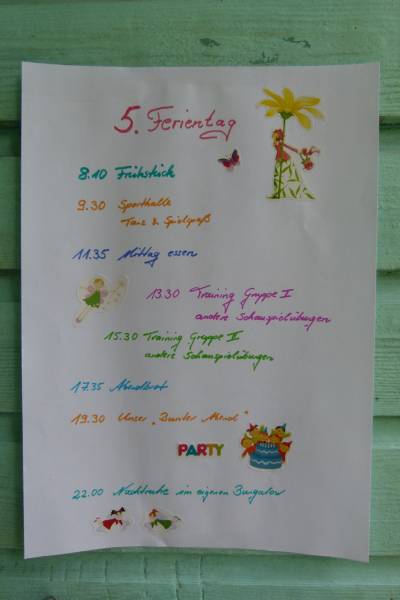 5. Ferientag
8.10 Frühstück
9.30 Sporthalle
Tanz & Spielspaß
11.35 Mittag essen
13.30 Training Gruppe I
andere Schauspielübungen
15.30 Training Gruppe II
andere Schauspielübungen
17.35 Abendbrot
19.30 Unser „Bunter Abend"
PARTY
22.00 Nachtruhe im eigenen Bungalow